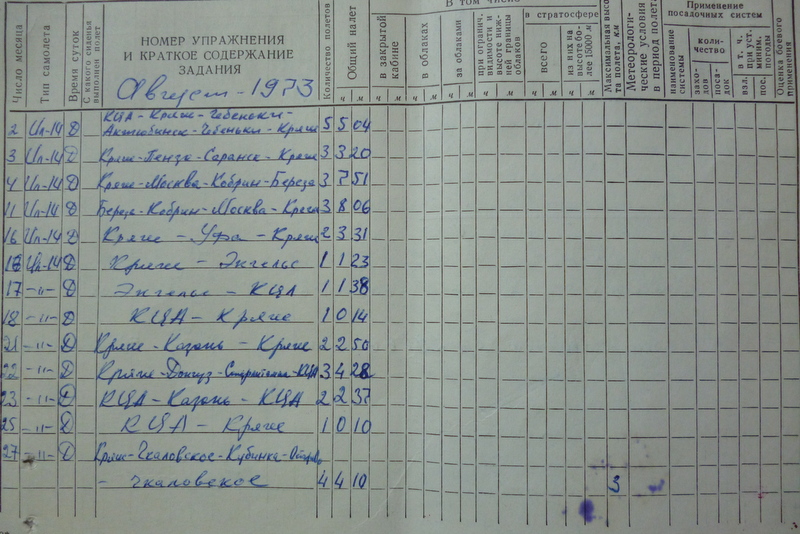 В том числе
в стратосфере
Применение посадочных систем
Число месяца
Тип самолета
Время суток
С какого сиденья выполнен полет
НОМЕР УПРАЖНЕНИЯ
И КРАТКОЕ СОДЕРЖАНИЕ
ЗАДАНИЯ
Август - 1973
Количество полетов
Общий налет
в закрытой кабине
в облаках
за облаками
при огранич. видимости и высоте нижней границы облаков
всего
из них на высоте более 15000 м
Максимальная высота полета, км
Метеорологические условия в период полета
наименование системы
количество
заходов
посадок
в т. ч. при уст. миним. погоды
взл.
пос.
Оценка боевого применения
ч м ч м ч м ч м ч м ч м ч м
КЦА - Кряж - Чебеньки -
2 Ил-14 Д Актюбинск - Чебеньки - Кряж 5 5 04
3 Ил-14 Д Кряж - Пенза - Саранск - Кряж 3 3 20
4 Ил-14 Д Кряж - Москва - Кобрин - Береза 3 7 51
11 Ил-14 Д Береза - Кобрин - Москва - Кряж 3 8 06
16 Ил-14 Д Кряж - Уфа - Кряж 2 3 31
16 Ил-14 Д Кряж - Энгельс 1 1 23
17 -"- Д Энгельс - КЦА 1 1 38
18 -"- Д КЦА - Кряж 1 0 14
21 -"- Д Кряж - Казань - Кряж 2 2 50
22 -"- Д Кряж - Донгуз - КЦА 3 4 28
23 -"- Д КЦА - Казань - КЦА 2 2 37
25 -"- Д КЦА - Кряж 1 0 10
27 -"- Д Кряж - Чкаловское - Кубинка - Остров
- Чкаловское 4 4 10